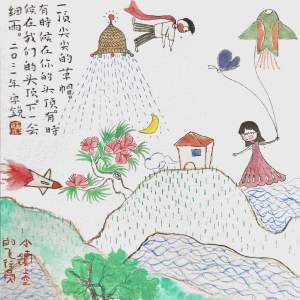 一顶尖尖的草帽。
有時候在你的头顶。有時
候在我们的头顶。下一会
细雨。二〇二一年
的飞行员